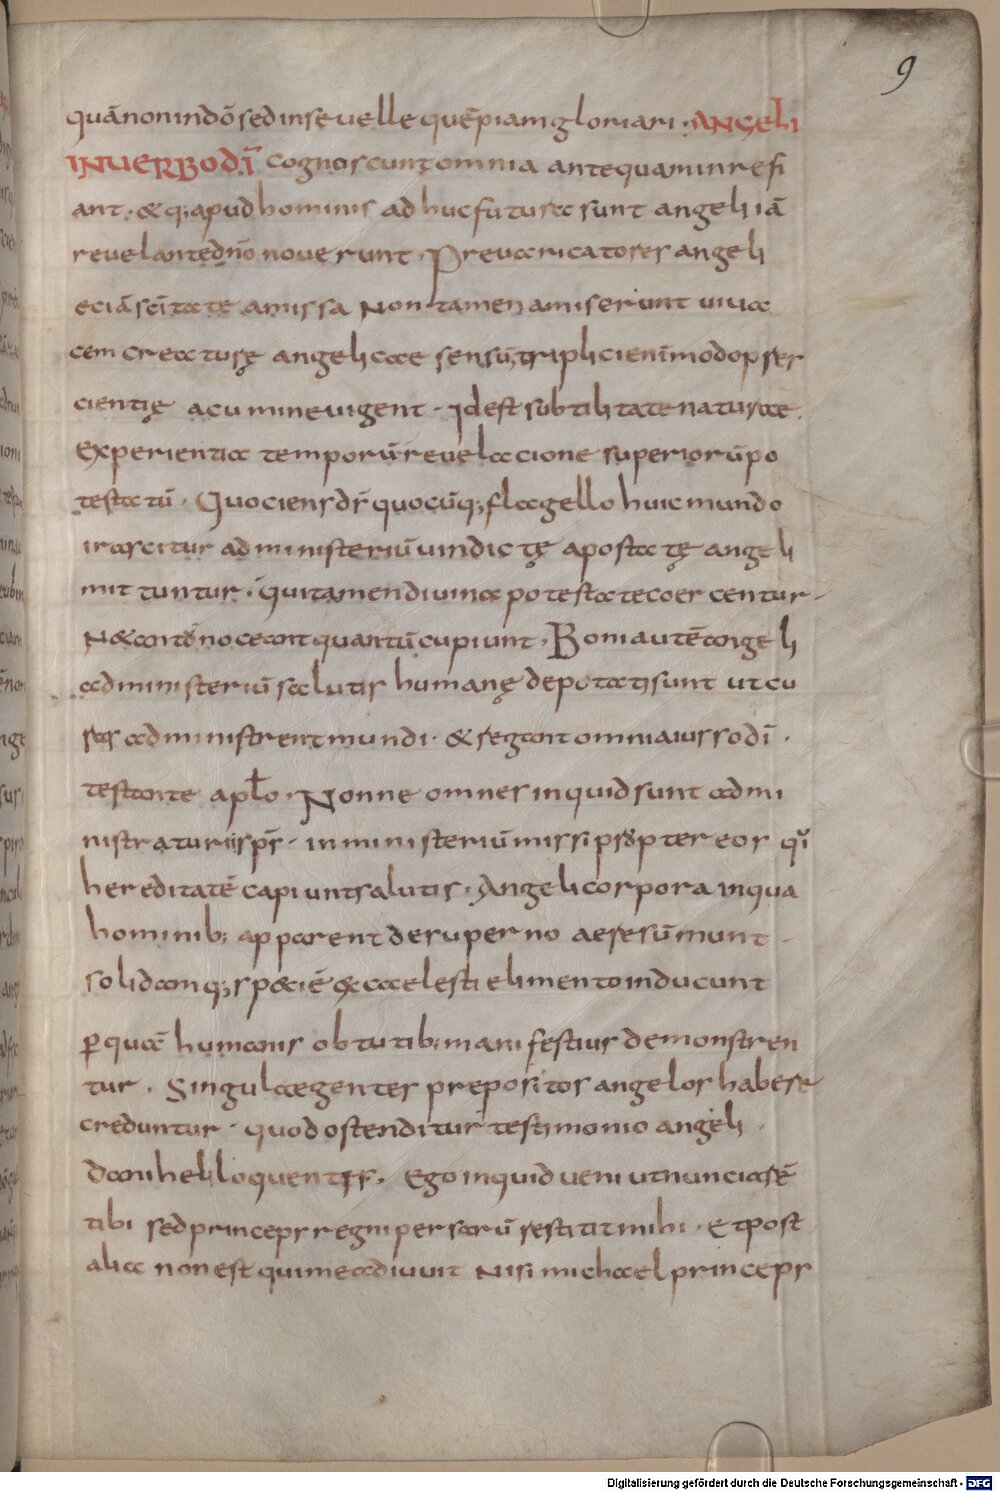 9
quā non in dō sed in se uelle quēpiam gloriari. ANGELI
IN UERBO DĪ cognoscunt omnia antequam in re fi
ant. & q; apud hominis ad huc futura sunt angeli iā
reuelante dn̄o nouerunt. Preuaricatores angeli
eciā scītate amissa Non tamen amiserunt uiua
cem creaturę angelicae sensū, triplici enī modo p ser
cientię acumine uigent. Idest subtilitate naturae.
Experientia temporū reuelacione superiorū po
testatū. Quociens dr̄ quocūq; flagello huic mundo
irascitur ad ministeriū uindictę apostatę angeli
mittuntur. qui tamen diuina potestate coercentur
N& tantn̄ noceant quantū cupiunt. Boni autē angeli
ad ministeriū salutis humanę depotati sunt ut cu
ras administrent mundi. & regant omnia iusso dī.
testante apło. Nonne omnes inquid sunt admi
nistraturiis sps̄. in ministeriū missi propter eos qi
hereditatē capiunt salutis. Angeli corpora in qua
hominib; apparent desuperno aere sumunt
solidamq; sp&iē &x caelesti elimento inducunt
p quā humanis obtutib; manifestius demonstren
tur. Singulae gentes prepositos angelos habere
creduntur. quod ostenditur testimonio angeli.
daniheli loquentes. Ego inquid ueni ut nunciarē
tibi sed princeps regni persarū restitit mihi. Et post
alia non est qui me adiuuit Nisi michael princeps
Digitalisierung gefördert durch die Deutsche Forschungsgemeinschaft - DFG